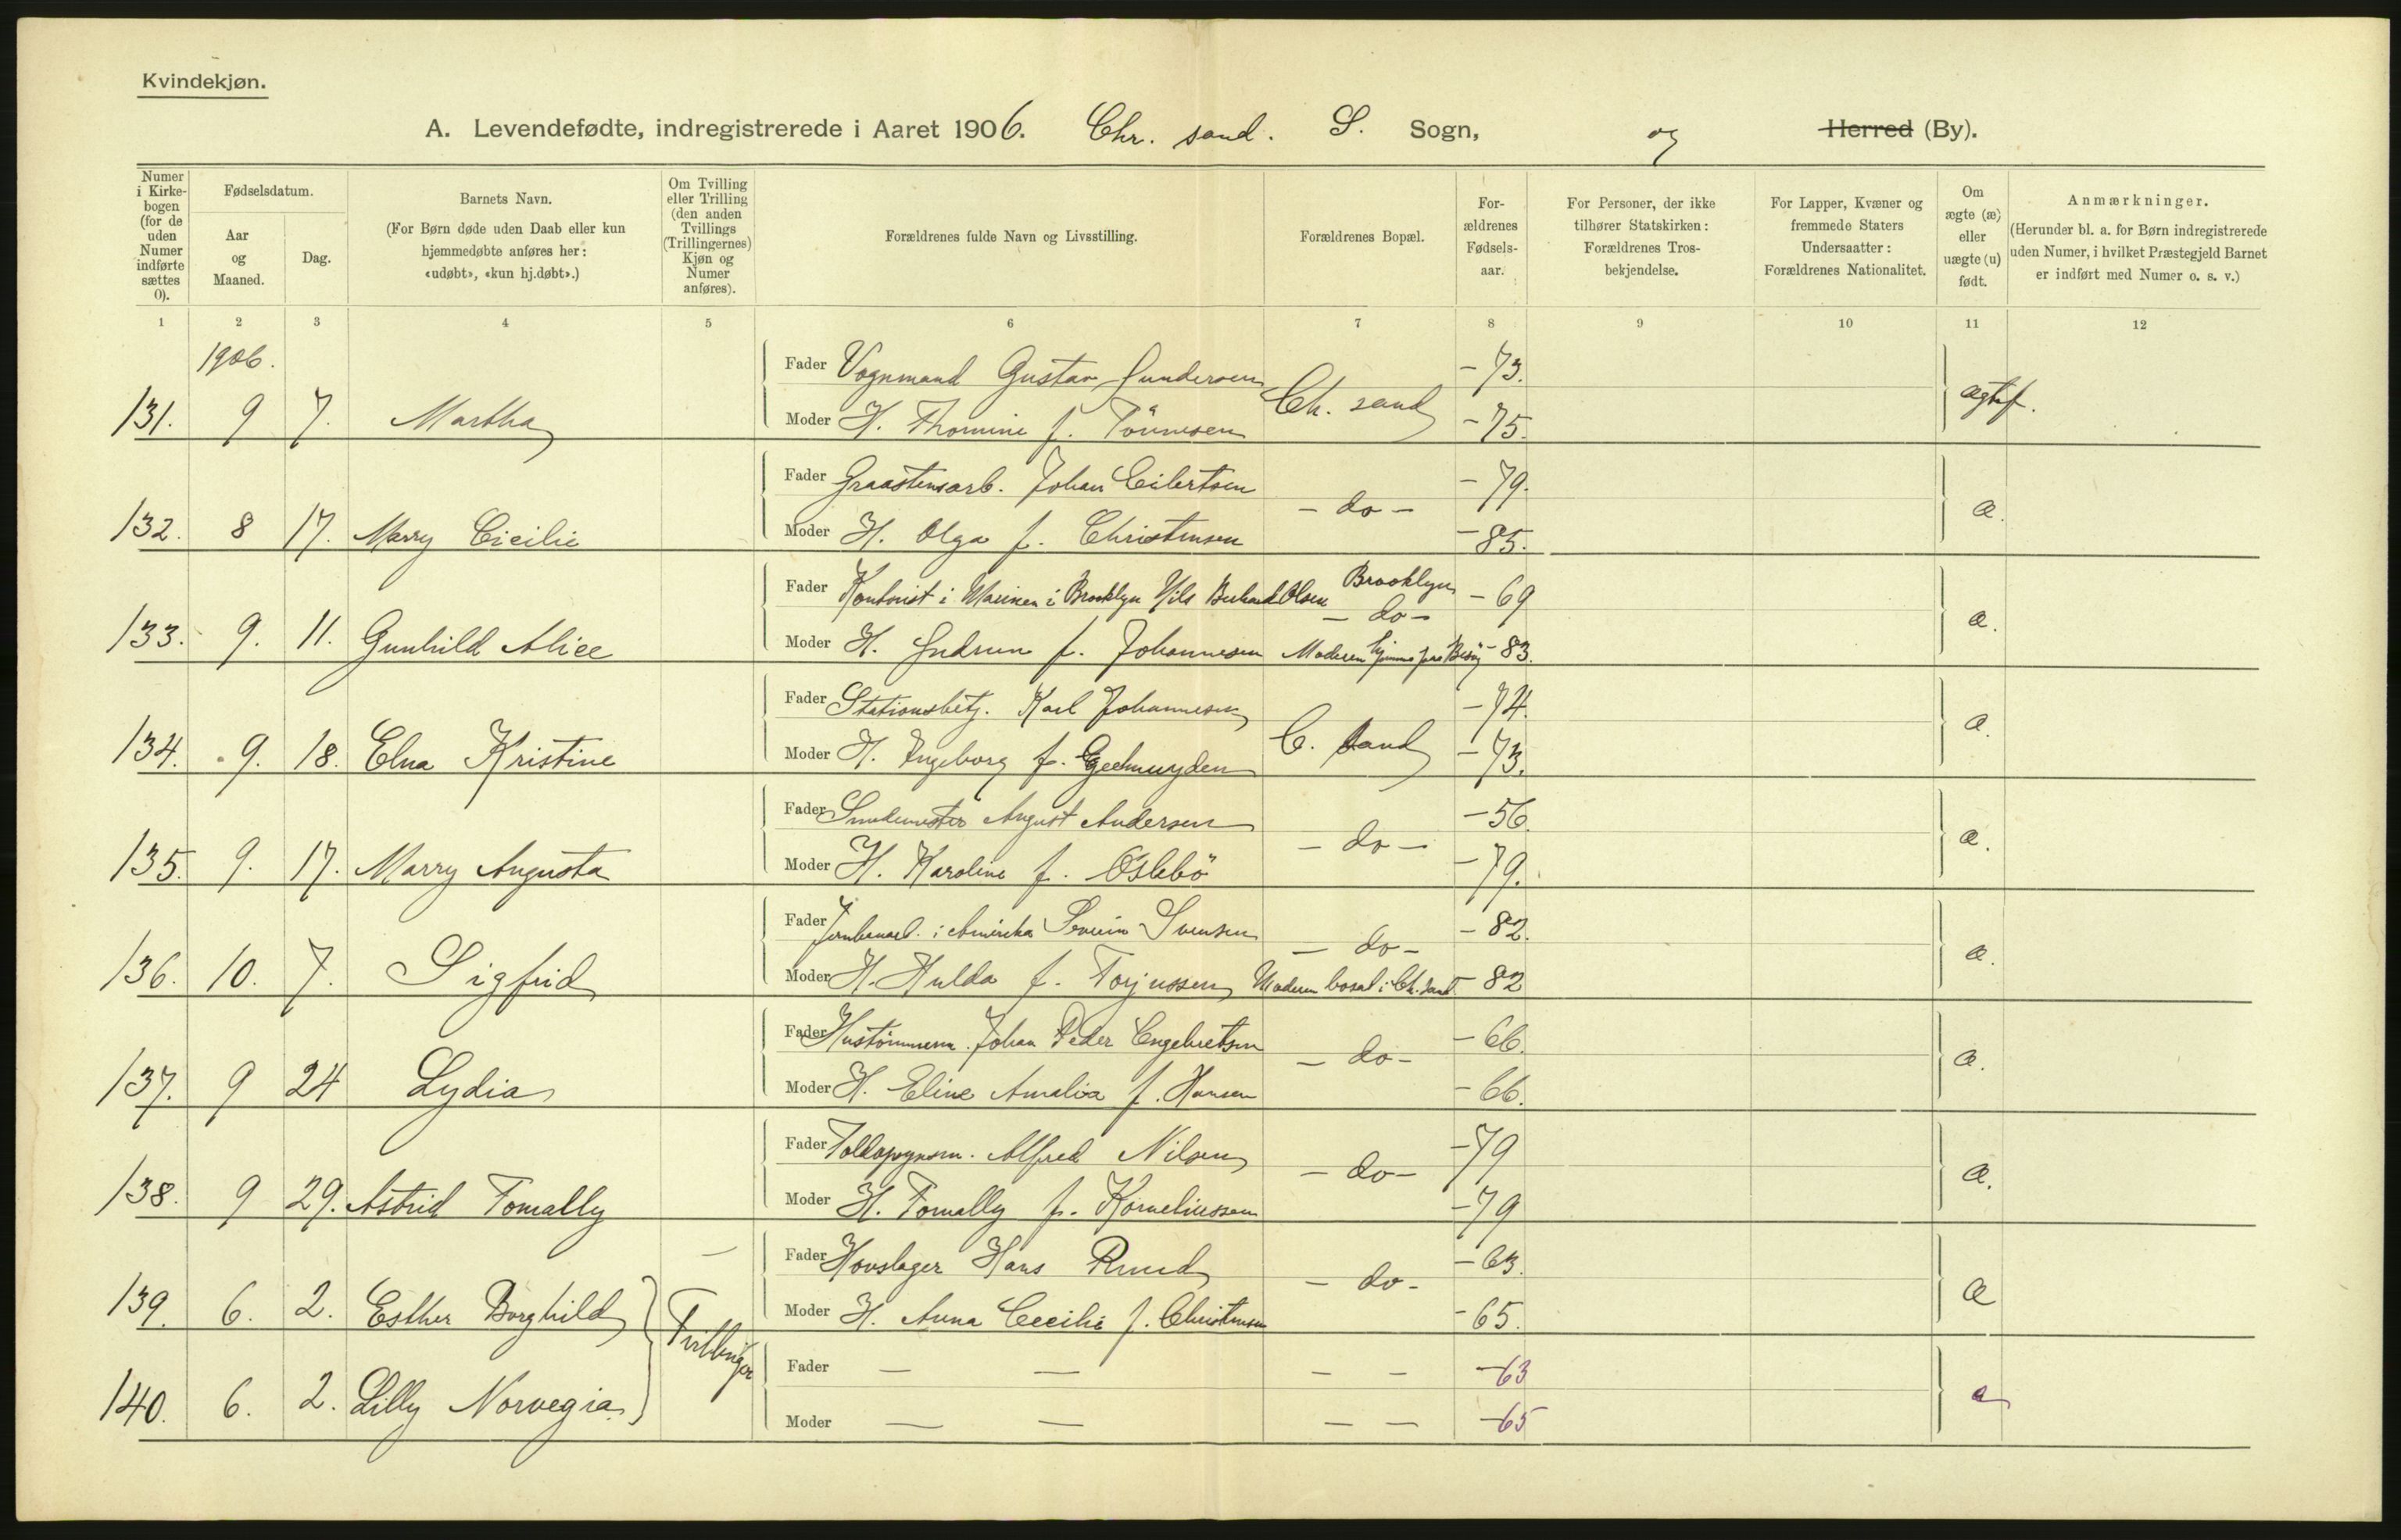 Kvindekjøn.
A. Levendefødte, indregistrerede i Aaret 1906. Chr. sand. S. Sogn, og Herred (By).
Numer i Kirkebogen (for de uden Numer indførte sættes 0).
Fødselsdatum.
Aar og Maaned.
Dag.
Barnets Navn.
(For Børn døde uden Daab eller kun hjemmedøbte anføres her: «udøbt», «kun hj.døbt».)
Om Tvilling eller Trilling (den anden Tvillings (Trillingernes) Kjøn og Numer anføres).
Forældrenes fulde Navn og Livsstilling.
Forældrenes Bopæl.
Forældrenes Fødselsaar.
For Personer, der ikke tilhører Statskirken: Forældrenes Trosbekjendelse.
For Lapper, Kvæner og fremmede Staters Undersaatter: Forældrenes Nationalitet.
Om ægte (æ) eller uægte (u) født.
Anmærkninger.
(Herunder bl. a. for Børn indregistrerede uden Numer, i hvilket Præstegjeld Barnet er indført med Numer o. s. v.)
1 2 3 4 5 6 7 8 9 10 11 12
1906.
Fader Vognmand Gustav Gundersen - 73.
131. 9 7. Martha Moder H. Thomine f. Tönnesen Ch. sand - 75. ægtef.
Fader Graastensarb. Johan Eilertsen - 79.
132. 8 17. Marry Cicilie Moder H. Olga f. Christensen - do - - 85. æ.
Fader Kontorist i Marinen i Brooklyn Nils Olsen Brooklyn - 69
- do -
133. 9. 11. Gunhild Alice Moder H. Gudrun f. Johannesen Moderen hjemme paa Besög - 83. æ.
Fader Stationsbetj. Karl Johannesen - 74.
134. 9. 18. Elna Kristine Moder H. Ingeborg f. Geelmuyden C. sand - 73. æ.
Fader Smedemester August Andersen - 56.
135. 9. 17. Marry Augusta Moder H. Karoline f. Öslebö - do - - 79. æ.
Fader Jernbanearb. i Amerika Severin Svensen - do - - 82.
136. 10. 7. Sigfrid Moder H. Hulda f. Torjussen Moderen bosat i Ch. sand - 82 æ.
Fader Hustömmerm. Johan Peder Engebretsen - 66.
137. 9 24 Lydia Moder H. Eline Amalia f. Hansen - do - - 66. æ.
Fader Toldopsynsm. Alfred Nilsen - 79
138. 9 29. Astrid Tomally Moder H. Tomally f. Korneliussen - do - - 79 æ.
Fader Hovslager Hans Ruud - 63.
139. 6. 2. Esther Borghild Trillinger Moder H. Anna Cecilie f. Christensen - do - - 65. æ
Fader — — — — - 63
140. 6. 2. Lilly Norvegia Moder — — — — - 65 æ